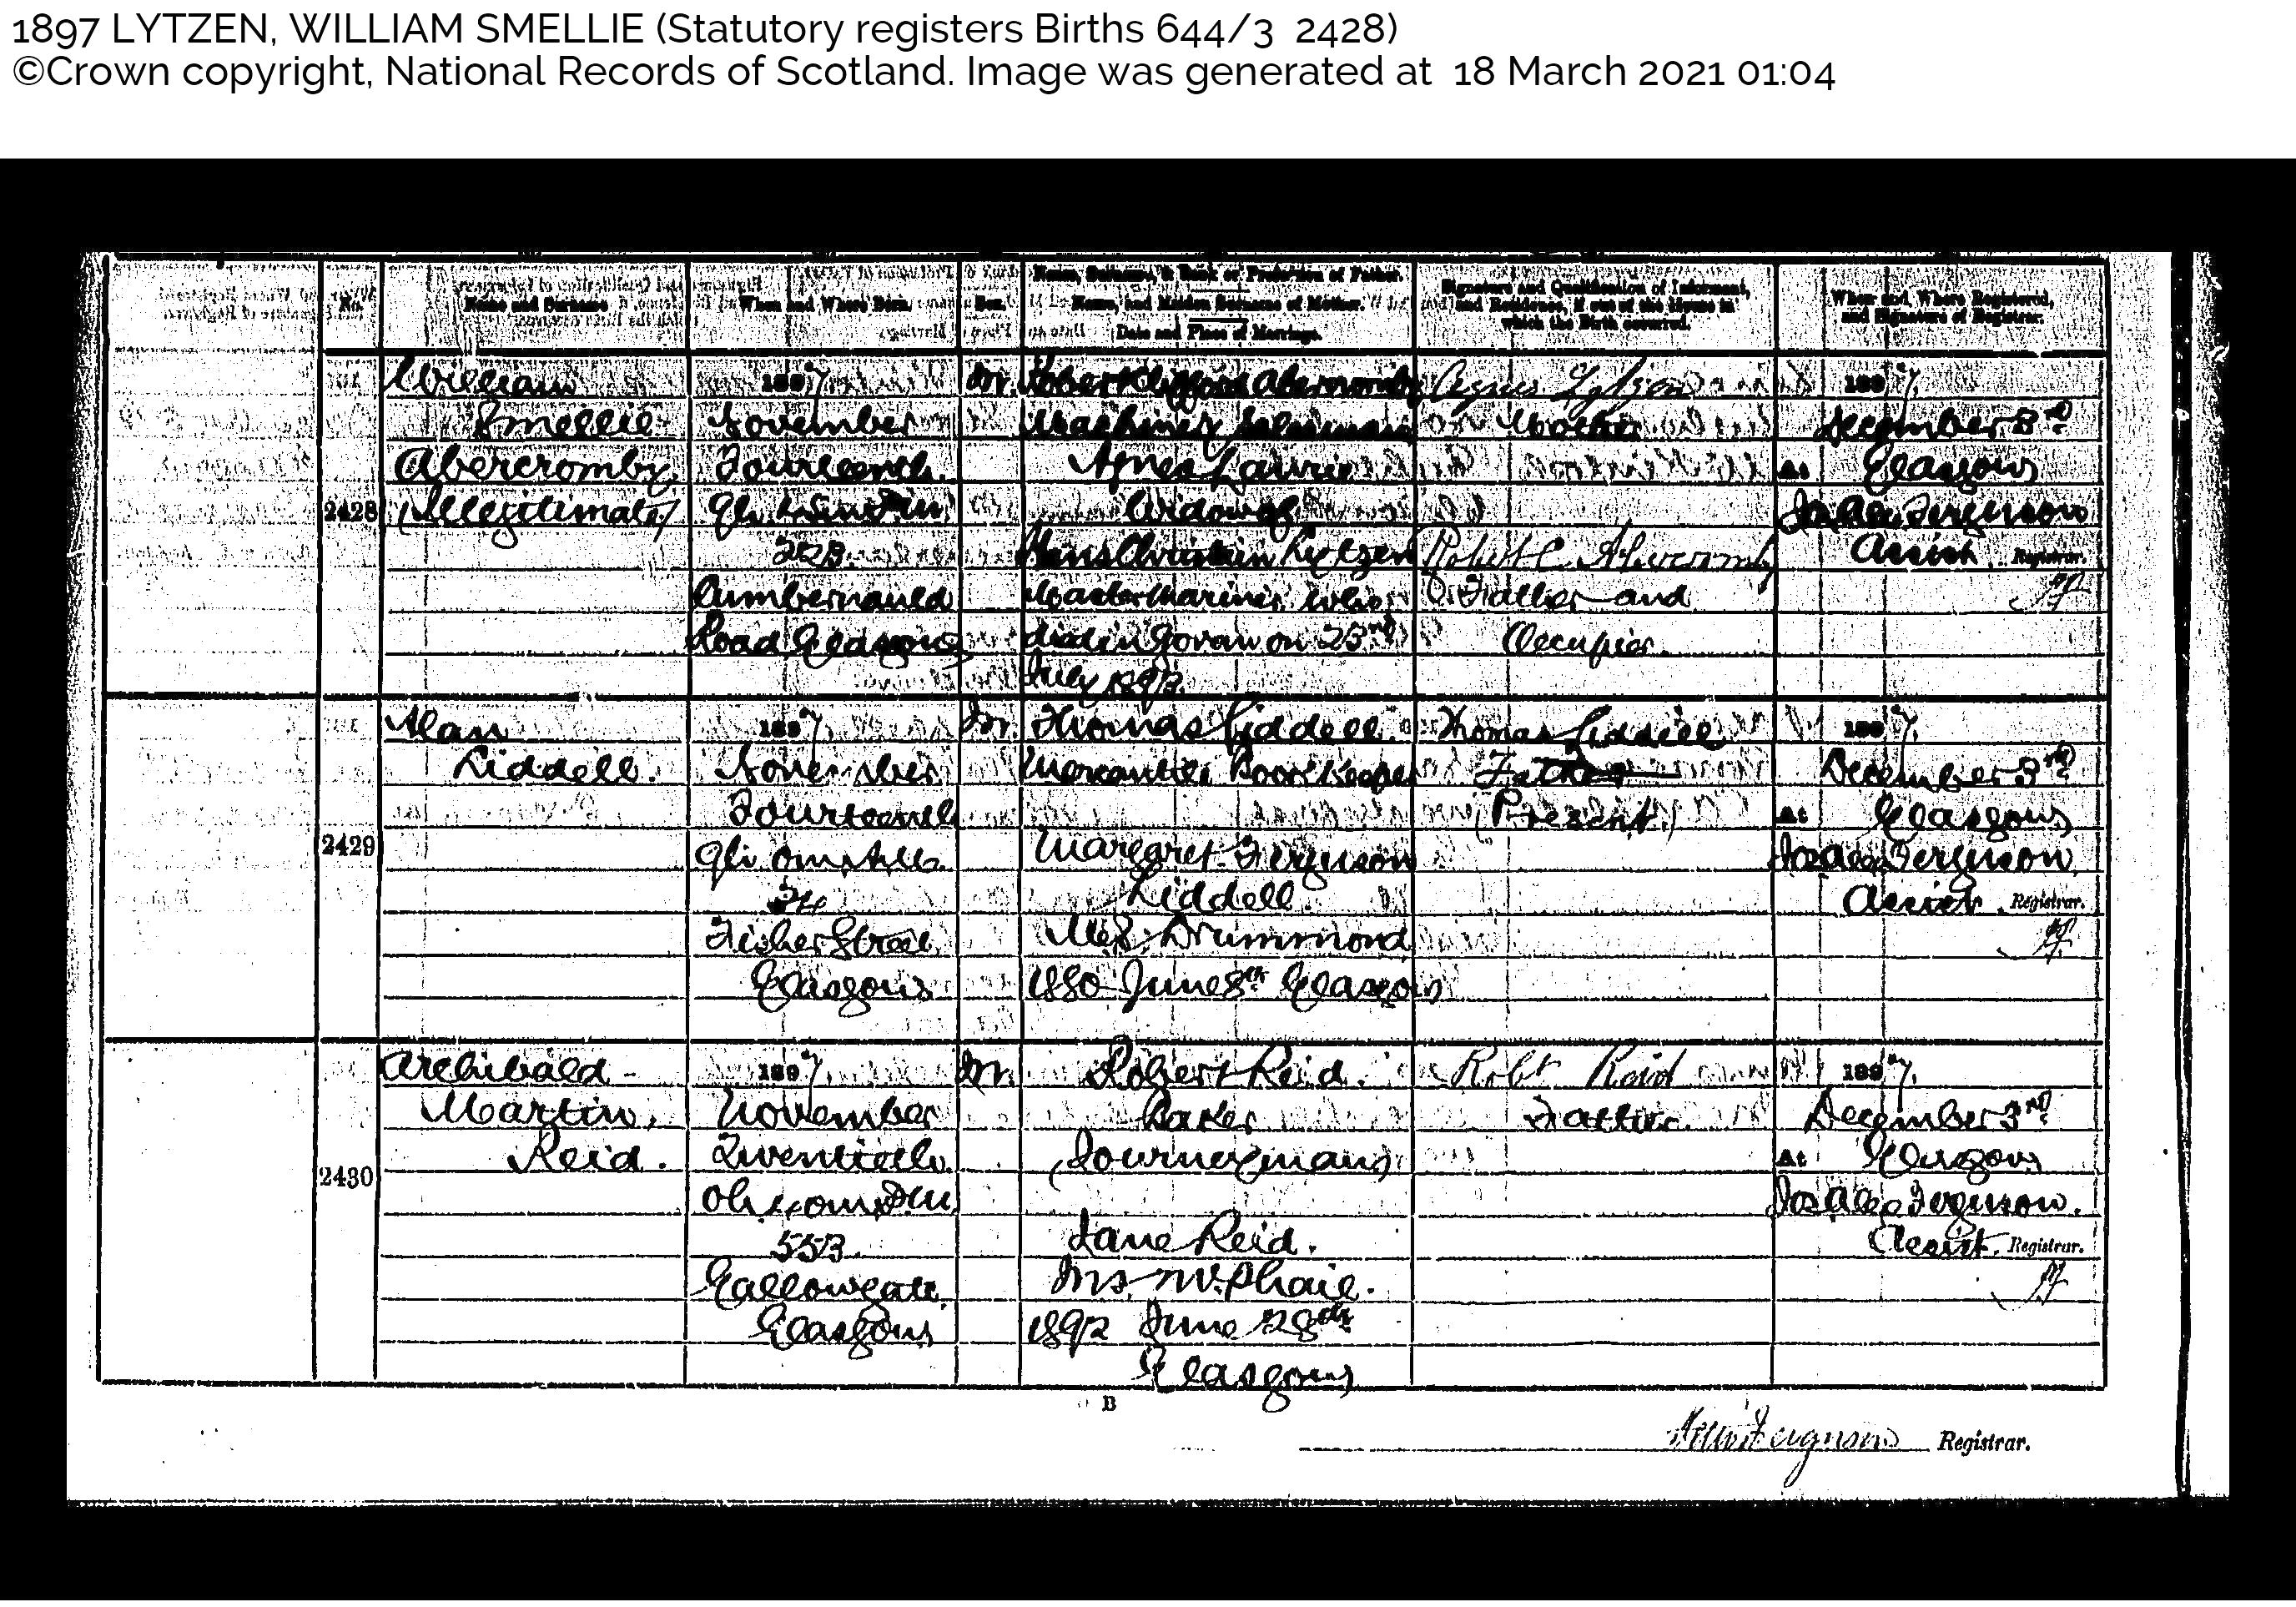 1897 LYTZEN, WILLIAM SMELLIE (Statutory registers Births 644/3 2428)
©Crown copyright, National Records of Scotland. Image was generated at 18 March 2021 01:04
No.
Name and Surname
When and Where Born.
Sex.
Name, Surname, & Rank or Profession of Father.
Name, and Maiden Surname of Mother.
Date and Place of Marriage.
Signature and Qualification of Informant,
and Residence, if out of the House in
which the Birth occurred.
When and Where Registered,
and Signature of Registrar.
2428
William
Smellie
Abercromby
(Illegitimate)
1897
November
Fourteenth
22B
Cumbernauld
Road Glasgow
M.
Robert Abercromby
Machinery Salesman
Agnes Laurie
Widow of
Hans Christian Lytzen
Master Mariner who
died in Govan on 23rd
July 1893.
Agnes Lytzen
Mother
Robert C. Abercromby
Father and
Occupier.
1897
December 3rd
At Glasgow
Ferguson
Assist. Registrar.
2429
Alan
Liddell.
1897
November
Fourteenth
34
Fisher Street
Glasgow
M.
Thomas Liddell
Mercantile Bookkeeper
Margaret Ferguson
Liddell
M.S. Drummond
1880 June 8th Glasgow
Thomas Liddell
Father
(Present)
1897.
December 3rd
At Glasgow
Ferguson
Assist. Registrar.
2430
Archibald
Martin
Reid.
1897
November
Twentieth
553
Gallowgate
Glasgow
M.
Robert Reid.
Baker
(Journeyman)
Jane Reid.
M.S. McPhail.
1892 June 28th
Glasgow
Robt Reid
Father.
1897.
December 3rd
At Glasgow
Ferguson.
Assist. Registrar.
B
Ferguson Registrar.